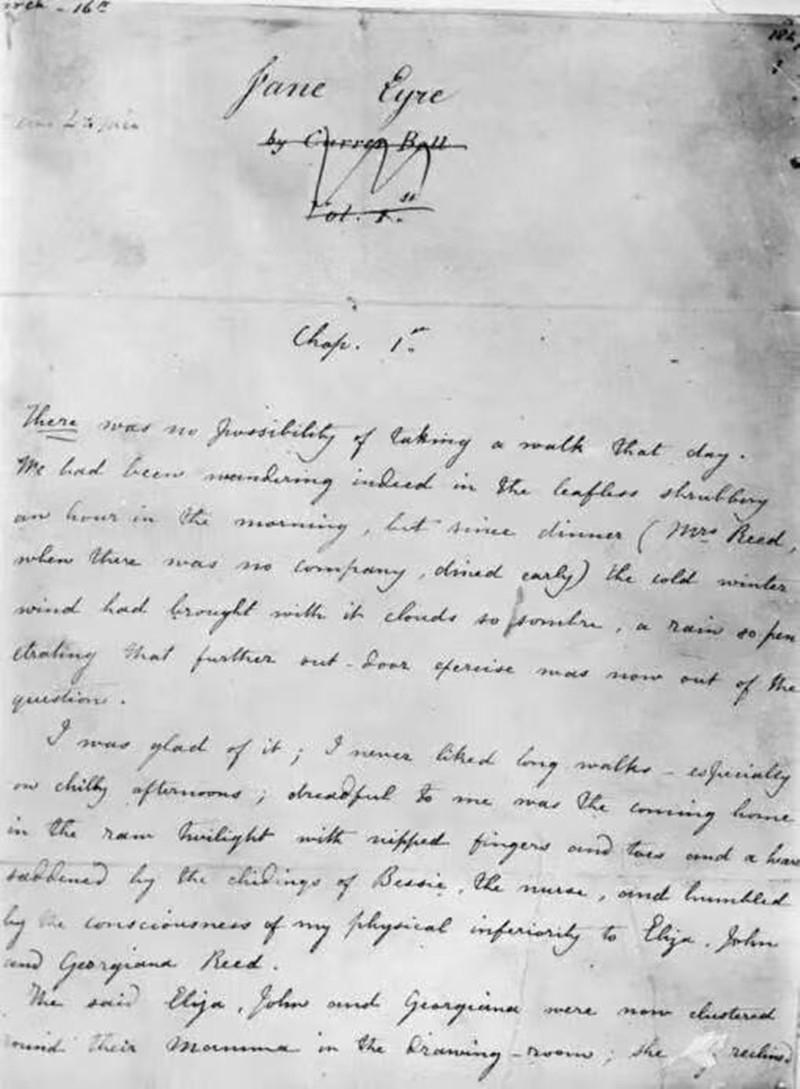 16th
184
Jane Eyre
by Currer Bell
Vol. 1.st
Chap. 1st.
There was no possibility of taking a walk that day.
We had been wandering indeed in the leafless shrubbery
an hour in the morning, but since dinner (Mrs Reed,
when there was no company, dined early) the cold winter
wind had brought with it clouds so sombre, a rain so pen
etrating that further out-door exercise was now out of the
question.
I was glad of it; I never liked long walks - especially
on chilly afternoons; dreadful to me was the coming home
in the raw twilight with nipped fingers and toes and a hear
saddened by the chidings of Bessie, the nurse, and humbled
by the consciousness of my physical inferiority to Eliza, John
and Georgiana Reed.
The said Eliza, John and Georgiana were now clustered
round their Mamma in the drawing-room; she reclined